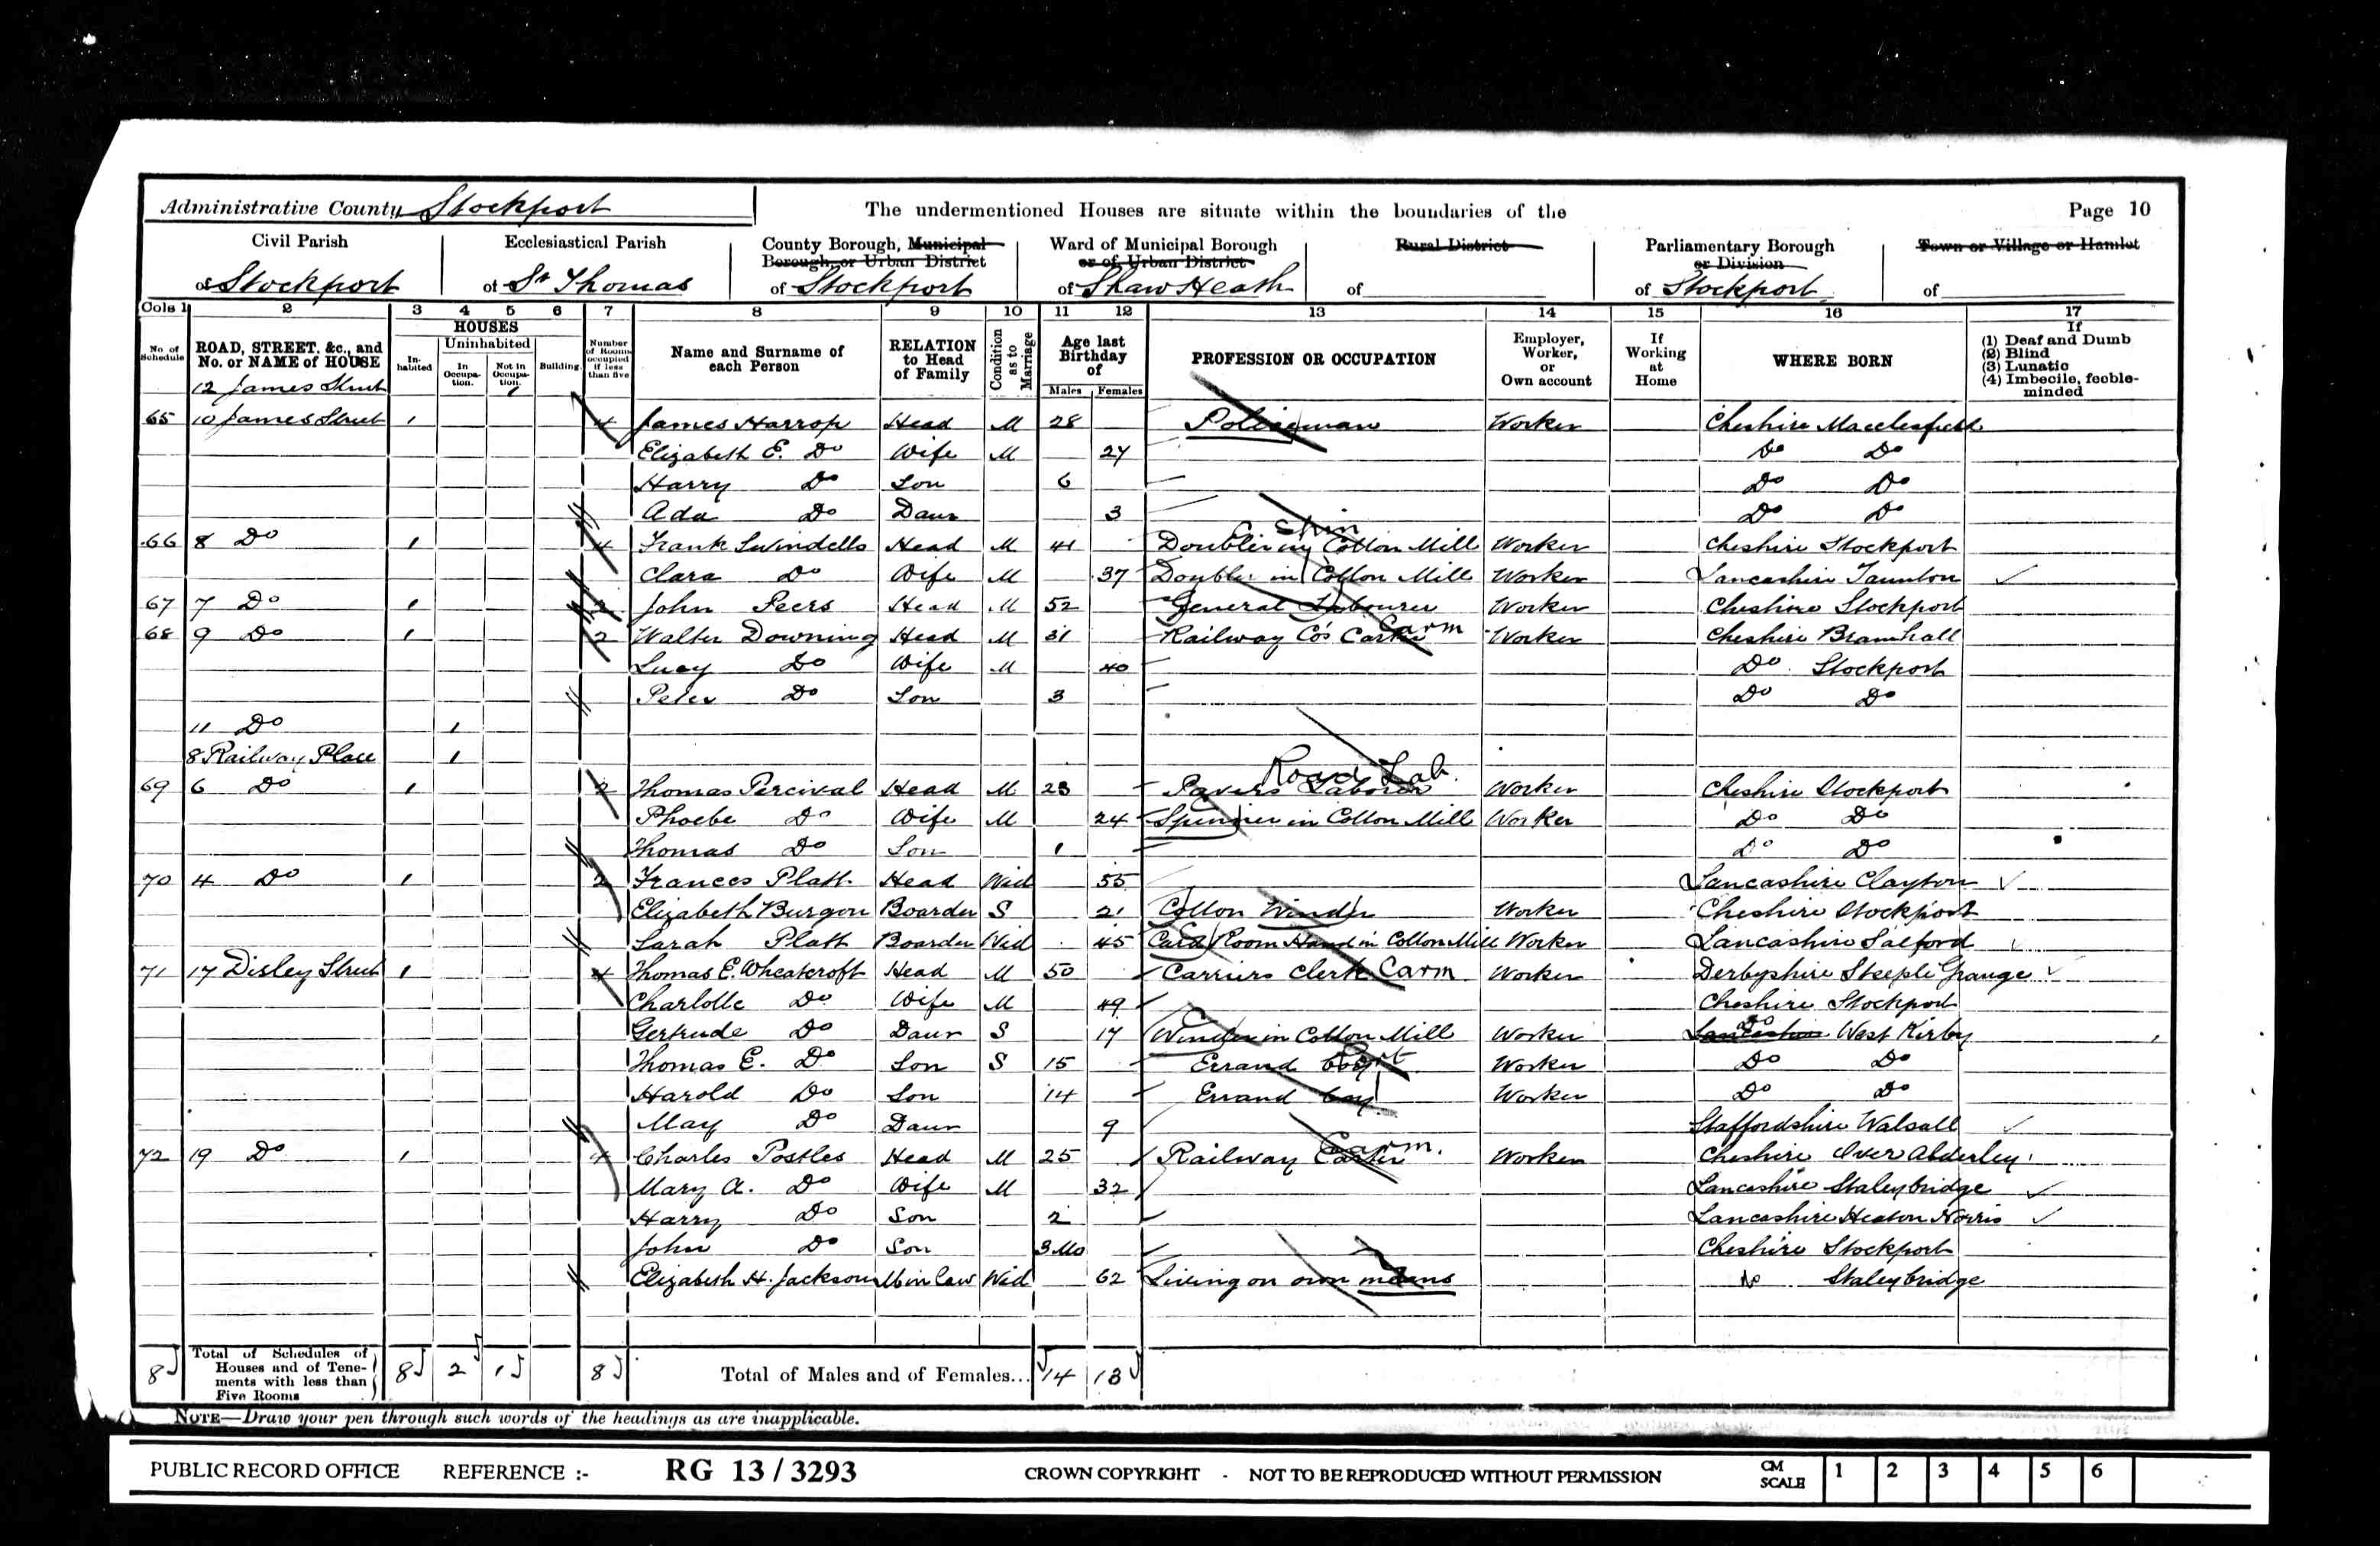 Administrative County Stockport
The undermentioned Houses are situate within the boundaries of the
Page 10
Civil Parish of Stockport
Ecclesiastical Parish of St Thomas
County Borough, Municipal Borough, or Urban District of Stockport
Ward of Municipal Borough or of Urban District of Shaw Heath
Rural District of
Parliamentary Borough or Division of Stockport
Town or Village or Hamlet of
Cols 1 2 3 4 5 6 7 8 9 10 11 12 13 14 15 16 17
No of Schedule
ROAD, STREET, &c., and No. or NAME of HOUSE
HOUSES
In-habited
Uninhabited
In Occupa-tion.
Not in Occupa-tion.
Building.
Number of Rooms occupied if less than five
Name and Surname of each Person
RELATION to Head of Family
Condition as to Marriage
Age last Birthday of
Males Females
PROFESSION OR OCCUPATION
Employer, Worker, or Own account
If Working at Home
WHERE BORN
If
(1) Deaf and Dumb
(2) Blind
(3) Lunatic
(4) Imbecile, feeble-minded
12 James Street 1
65 10 James Street 1 4 James Harrop Head M 28 Policeman Worker Cheshire Macclesfield
Elizabeth E. Do Wife M 27 Do Do
Harry Do Son 6 Do Do
Ada Do Daur 3 Do Do
66 8 Do 1 4 Frank Swindells Head M 41 Doubler in Cotton Mill Worker Cheshire Stockport
Clara Do Wife M 37 Doubler in Cotton Mill Worker Lancashire Taunton
67 7 Do 1 2 John Peers Head M 52 General Labourer Worker Cheshire Stockport
68 9 Do 1 2 Walter Downing Head M 31 Railway Co's Carter Carm Worker Cheshire Bramhall
Lucy Do Wife M 40 Do Stockport
Peter Do Son 3 Do Do
11 Do 1
8 Railway Place 1
Road Lab.
69 6 Do 1 2 Thomas Percival Head M 23 Pavers Laborer Worker Cheshire Stockport
Phoebe Do Wife M 24 Spinner in Cotton Mill Worker Do Do
Thomas Do Son 1 Do Do
70 4 Do 1 2 Frances Platt Head Wid 55 Lancashire Clayton
Elizabeth Burgon Boarder S 21 Cotton Winder Worker Cheshire Stockport
Sarah Platt Boarder Wid 45 Card Room Hand in Cotton Mill Worker Lancashire Salford
71 17 Disley Street 1 4 Thomas E. Wheatcroft Head M 50 Carriers Clerk Carm Worker Derbyshire Steeple Grange
Charlotte Do Wife M 49 Cheshire Stockport
Gertrude Do Daur S 17 Winder in Cotton Mill Worker Lancashire Do West Kirby
Thomas E. Do Son S 15 Errand boy Worker Do Do
Harold Do Son 14 Errand boy Worker Do Do
May Do Daur 9 Staffordshire Walsall
72 19 Do 1 4 Charles Postles Head M 25 Railway Carter Carm. Worker Cheshire Over Alderley
Mary A. Do Wife M 32 Lancashire Staleybridge
Harry Do Son 2 Lancashire Heaton Norris
John Do Son 3 Mo Cheshire Stockport
Elizabeth H. Jackson M in law Wid 62 Living on own means Do Staleybridge
8 Total of Schedules of Houses and of Tene-ments with less than Five Rooms 8 2 1 8 Total of Males and of Females... 14 13
NOTE—Draw your pen through such words of the headings as are inapplicable.
PUBLIC RECORD OFFICE REFERENCE :- RG 13 / 3293 CROWN COPYRIGHT - NOT TO BE REPRODUCED WITHOUT PERMISSION CM SCALE 1 2 3 4 5 6